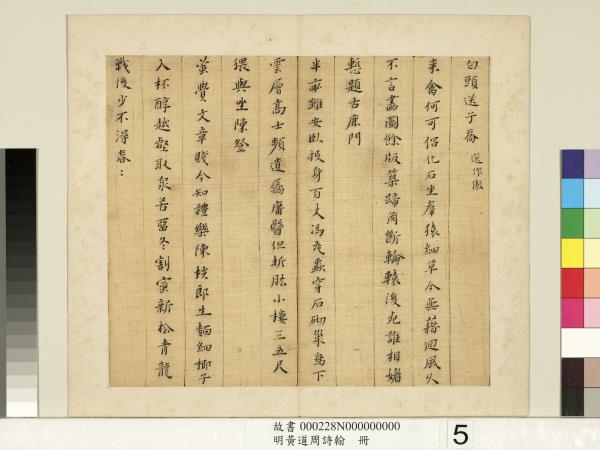 白頭送子喬
來禽何可侶化石坐羣猿細草今無藉迴風久
不言畫圖餘版築蹄肉斷輪轅後先誰相媚
慙題古鹿門
半畝難安臥投身百丈馮虎蠡穿石砌巢鳥下
雲層高士頻遺屬庸醫但折肱小樓三五尺
猥與坐陳登
蛩費文章賤今知禮樂陳檳郎生麵細椰子
入杯醇越壑取泉苦留冬割蜜新松青龍
戰後少不得春：
故書 000228N000000000
明黃道周詩翰 冊
5